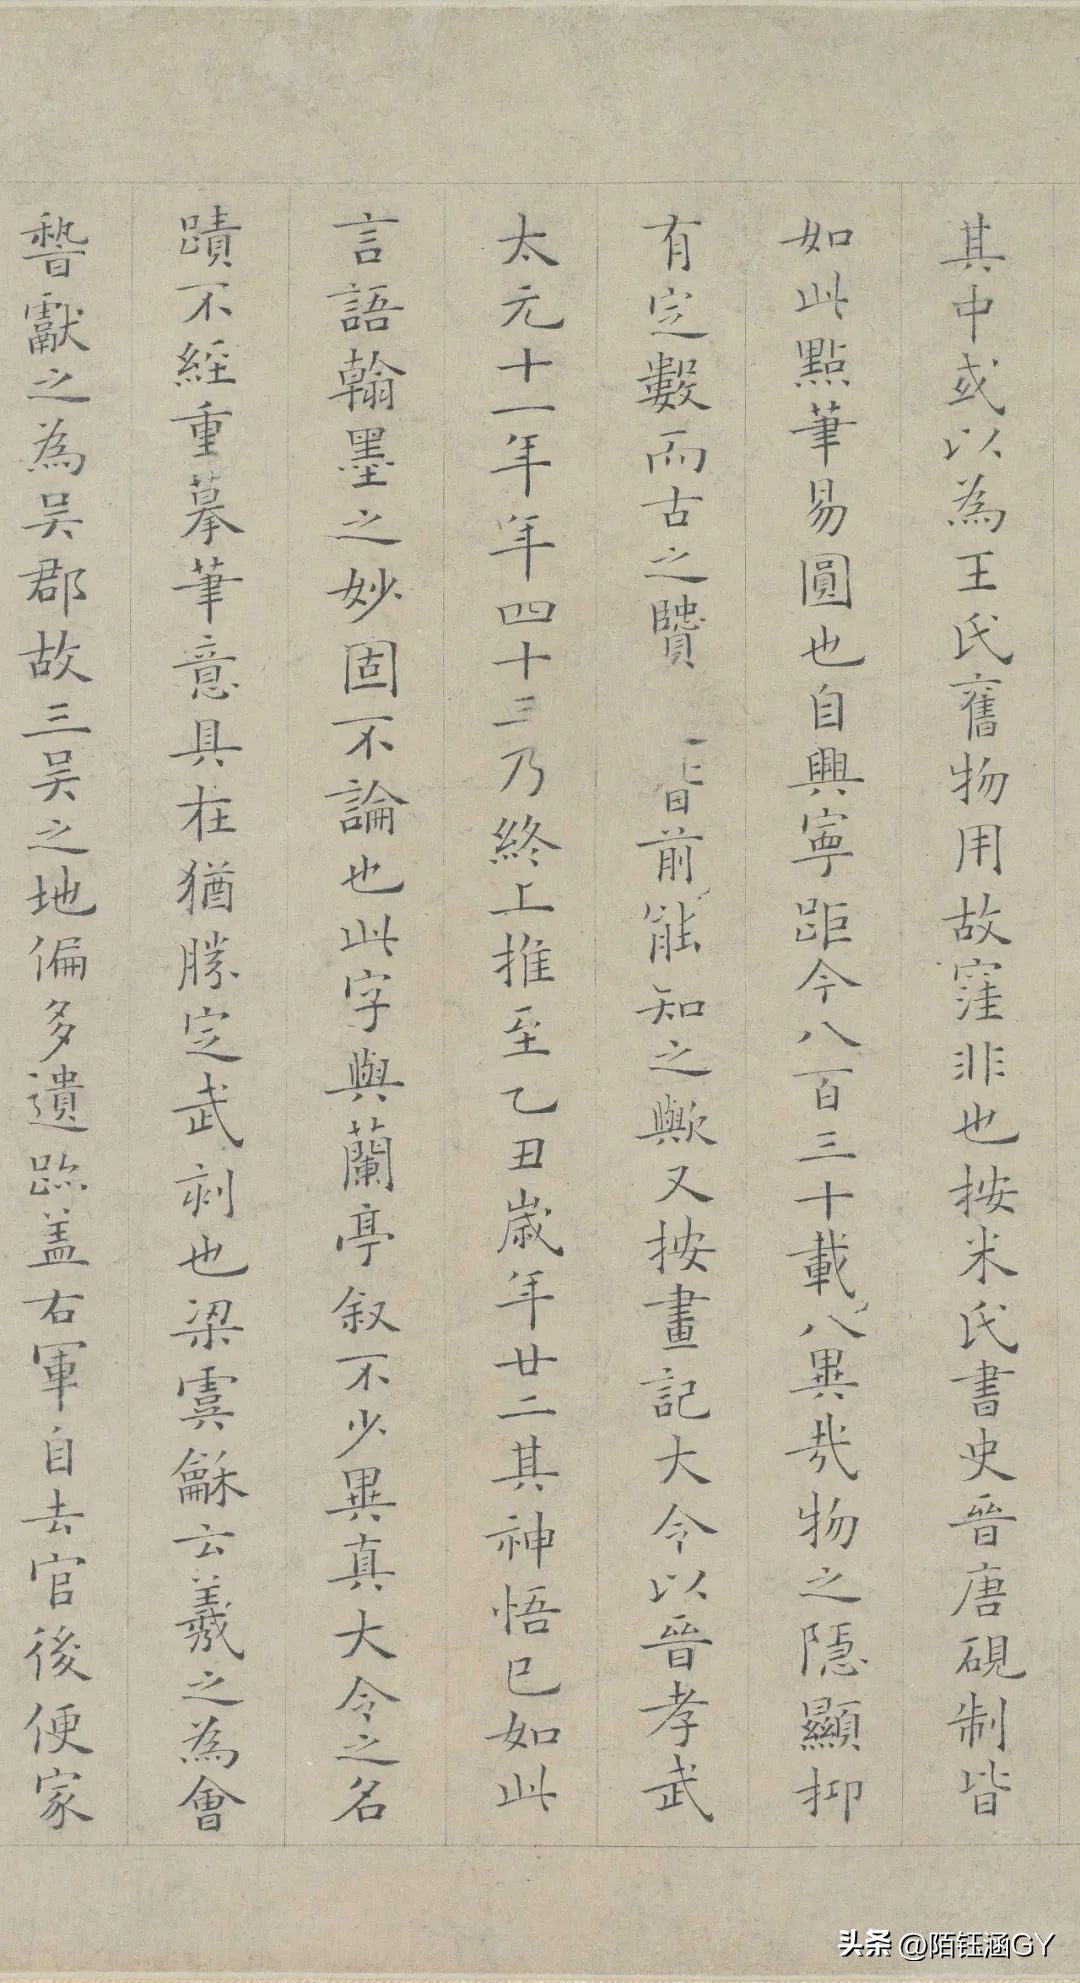 其中或以為王氏舊物用故窪非也按米氏書史晉唐硯制皆
如此點筆易圓也自興寧距今八百三十載八異哉物之隱顯抑
有定數而古之賢 前能知之歟又按畫記大令以晉孝武
太元十一年年四十三乃終上推至乙丑歲年廿二其神悟已如此
言語翰墨之妙固不論也此字與蘭亭叙不少異真大令之名
蹟不經重摹筆意具在猶勝定武刻也梁虞龢云羲之為會
稽獻之為吳郡故三吳之地偏多遺跡盖右軍自去官後便家
头条 @陌钰涵GY